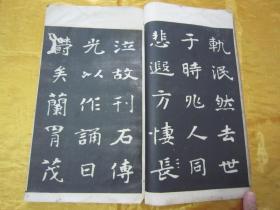 軌泯然去世
于時兆人同
悲遐方悽長
泣故刊石傳
光以作誦曰
矣蘭胄茂